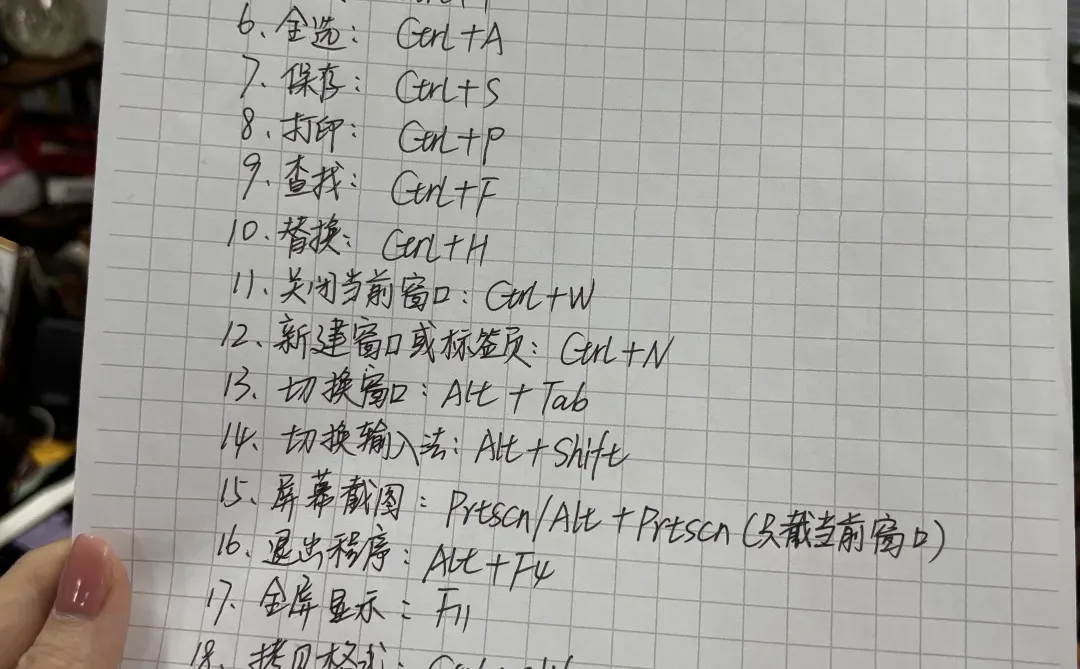 6、全选： Ctrl+A
7、保存： Ctrl+S
8、打印： Ctrl+P
9、查找： Ctrl+F
10、替换： Ctrl+H
11、关闭当前窗口：Ctrl+W
12、新建窗口或标签页：Ctrl+N
13、切换窗口：Alt+Tab
14、切换输入法：Alt+Shift
15、屏幕截图：Prtscn/Alt+Prtscn(只截当前窗口)
16、退出程序：Alt+F4
17、全屏显示：F11
18、拷贝格式：